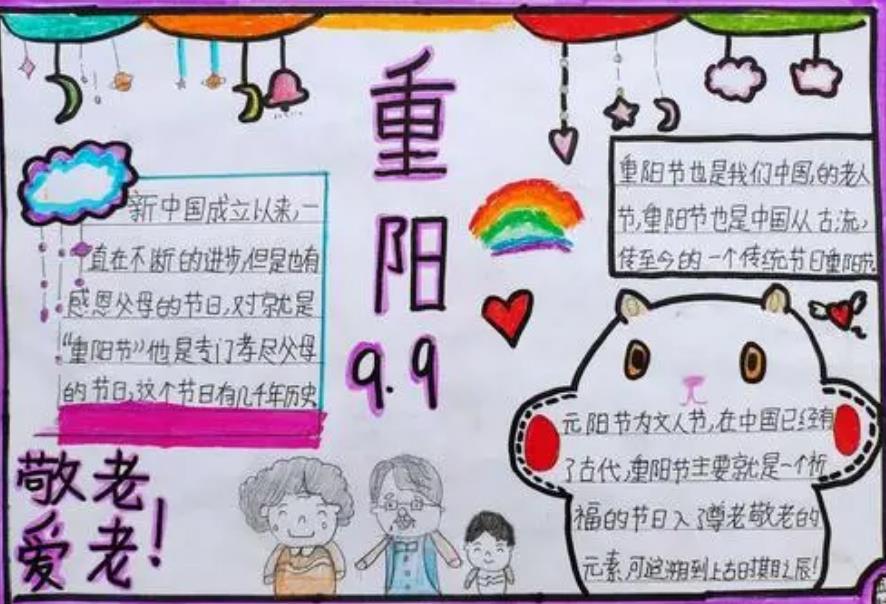 重阳
9.9
新中国成立以来,一
直在不断的进步,但是也有
感恩父母的节日,对就是
“重阳节”他是专门孝尽父母
的节日,这个节日有几千年历史
敬老
爱老!
重阳节也是我们中国,的老人
节,重阳节也是中国从古流,
传至今的一个传统节日重阳节
元阳节为文人节,在中国已经有
了古代,重阳节主要就是一个祈
福的节日入了尊老敬老的
元素,可追溯到上古时期之辰!